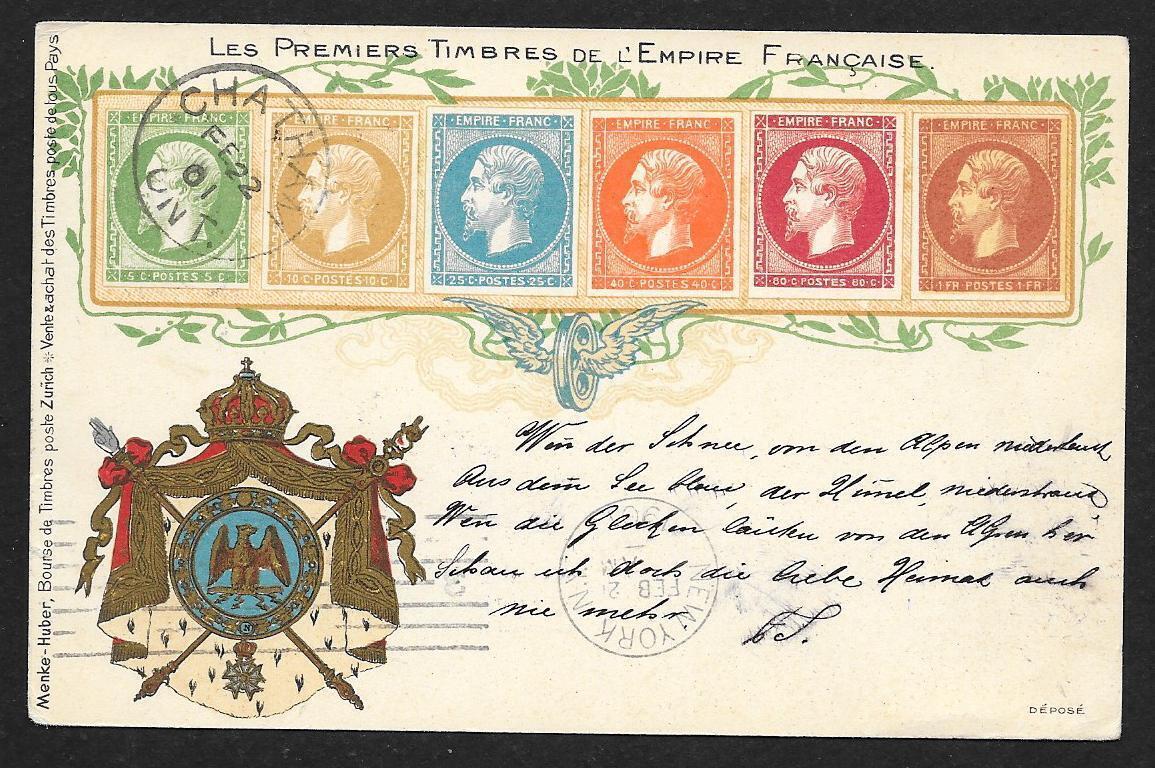 LES PREMIERS TIMBRES DE L'EMPIRE FRANÇAISE.
Menke-Huber, Bourse de Timbres poste Zürich * Vente & achat des Timbres poste de tous Pays
EMPIRE · FRANC
5 · C · POSTES 5 · C
EMPIRE · FRANC
10 · C · POSTES 10 · C ·
EMPIRE · FRANC
25 · C · POSTES · 25 · C
EMPIRE · FRANC
40 · C · POSTES 40 · C
EMPIRE · FRANC
80 · C · POSTES 80 · C
EMPIRE · FRANC
1 FR POSTES 1 FR
CHATHAM
FE 22
01
N
Wen der Schnee, von den Alpen
Aus dem See blau, der Himel,
Wen die Glocken läuten von den Alpen her
Schau ich doch die liebe Heimat auch
nie mehr
NEW YORK
FEB 2
DÉPOSÉ